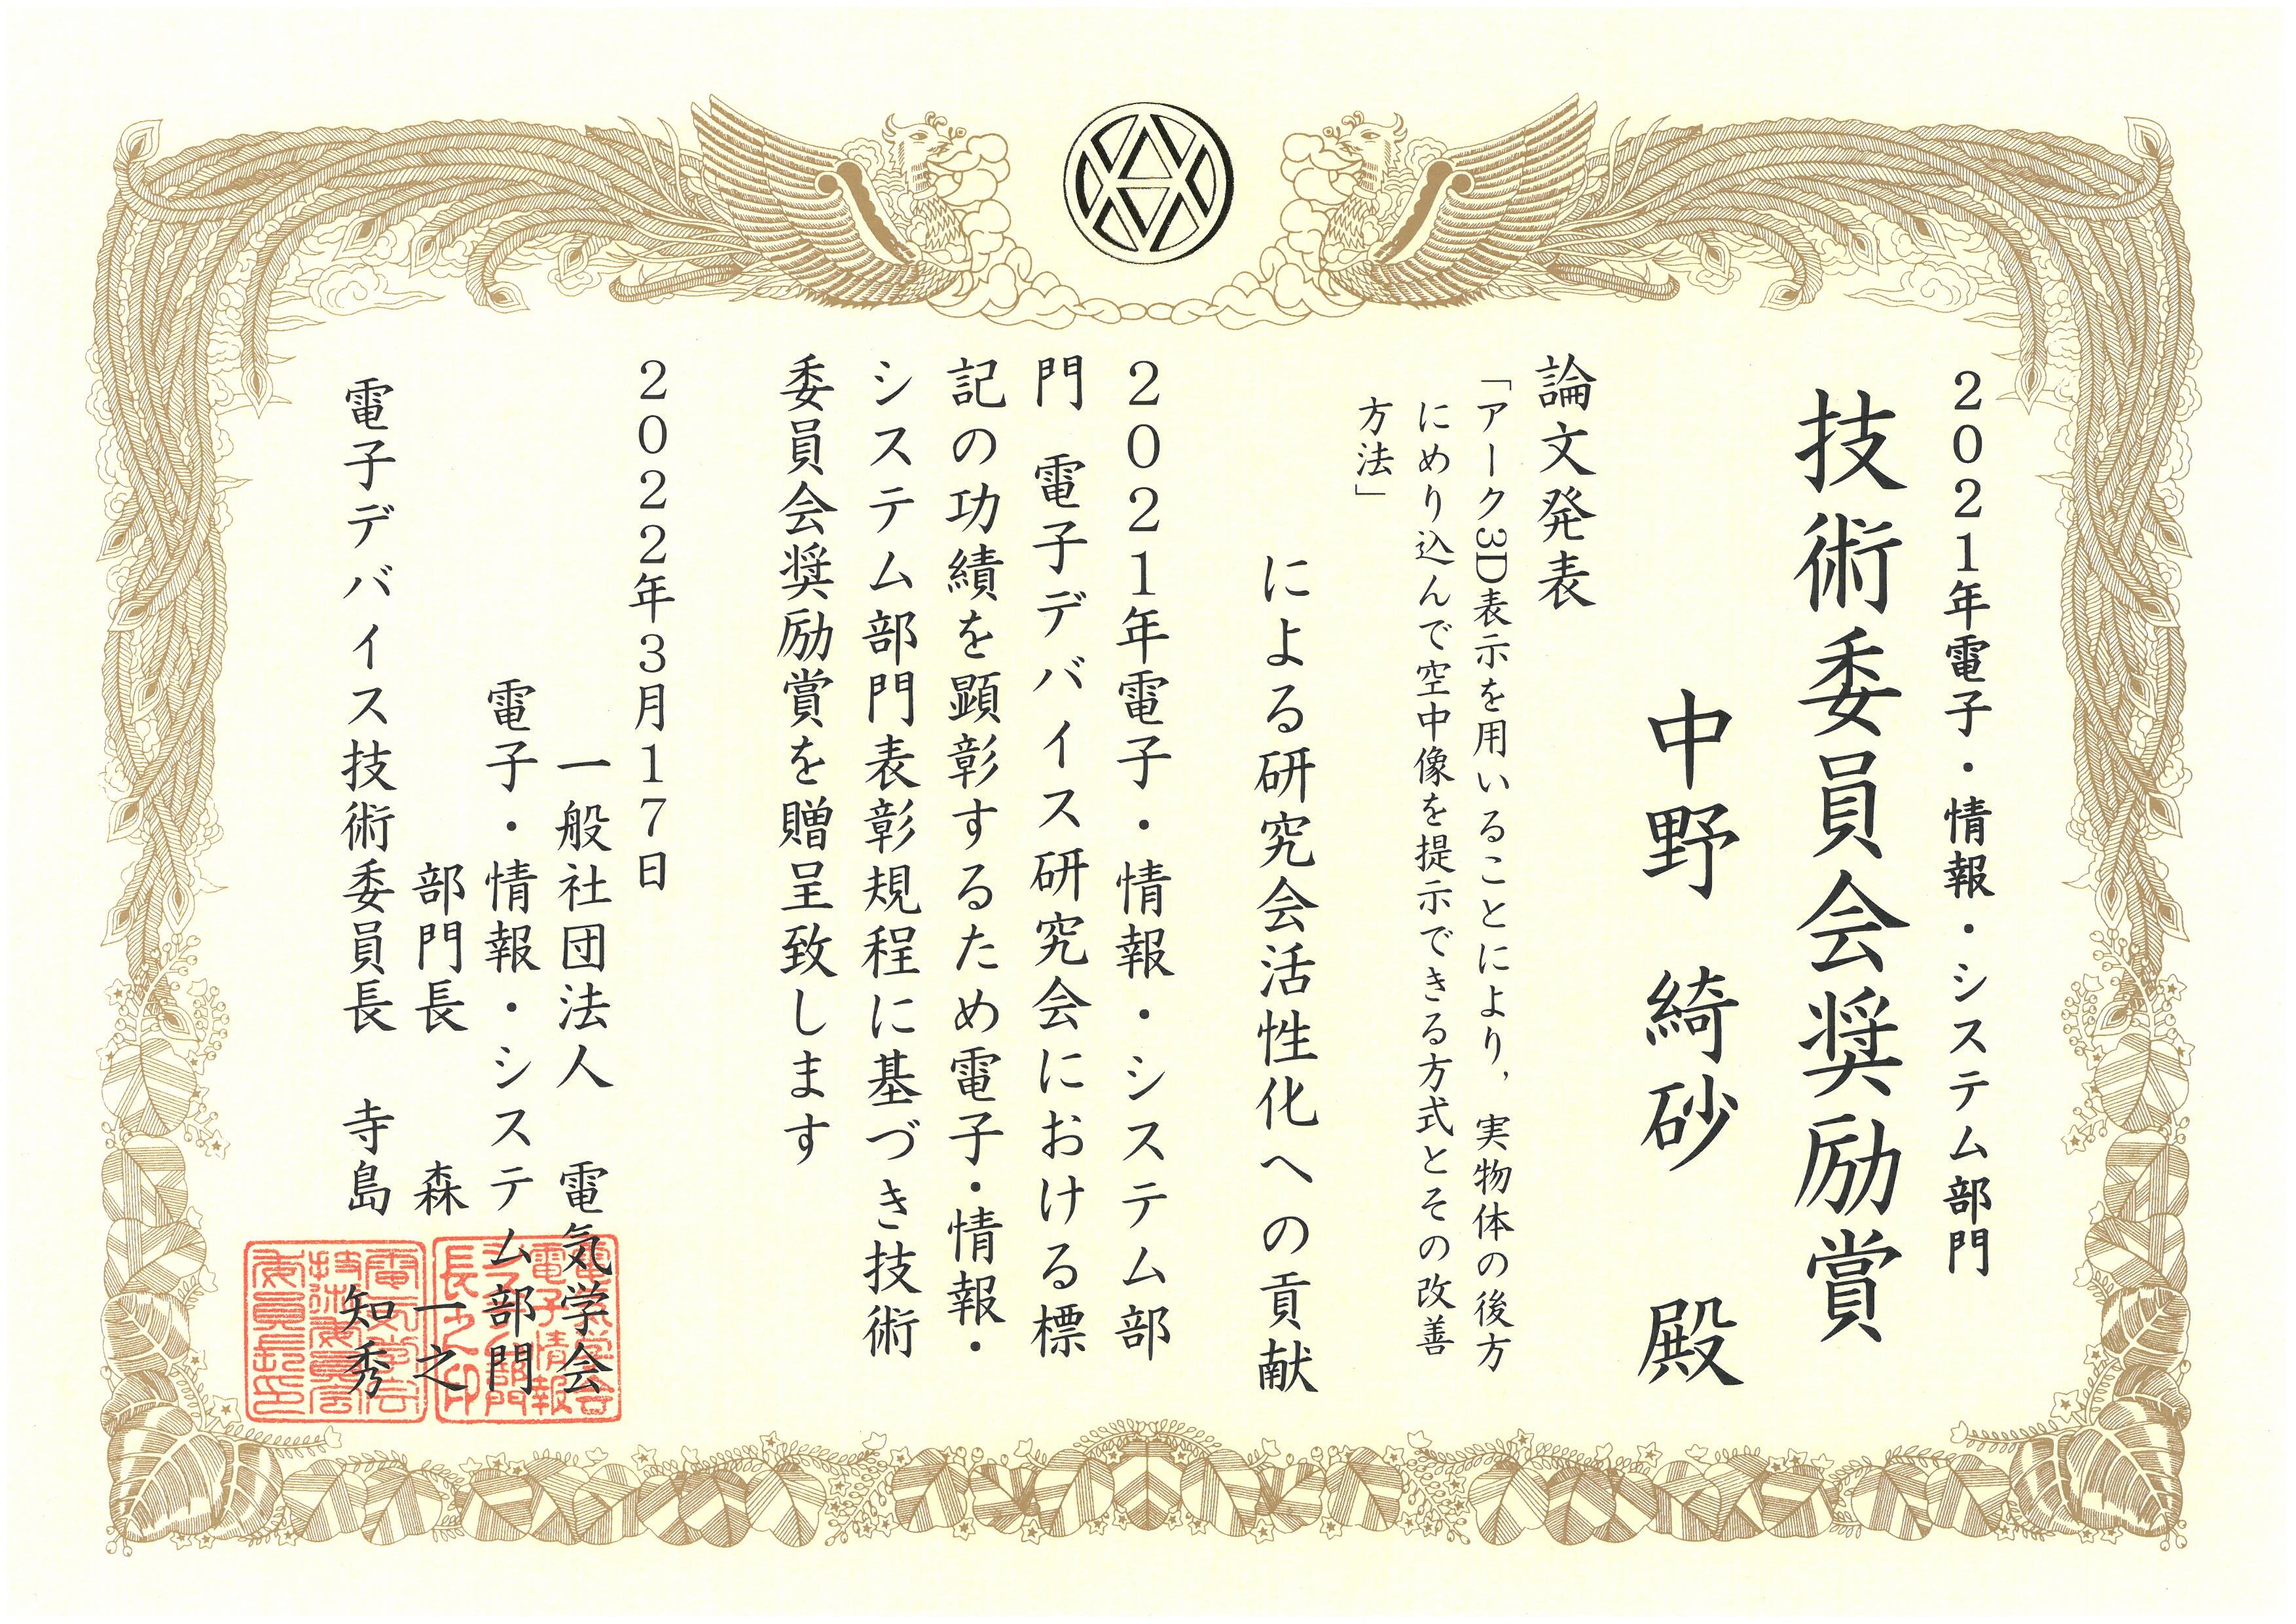 2021年電子・情報・システム部門
技術委員会奨励賞
中野 綺砂 殿
論文発表
「アーク3D表示を用いることにより，実物体の後方
にめり込んで空中像を提示できる方式とその改善
方法」
による研究会活性化への貢献
2021年電子・情報・システム部
門 電子デバイス研究会における標
記の功績を顕彰するため電子・情報・
システム部門表彰規程に基づき技術
委員会奨励賞を贈呈致します
2022年3月17日
一般社団法人 電気学会
電子・情報・システム部門
部門長 森 一之
電子デバイス技術委員長 寺島 知秀